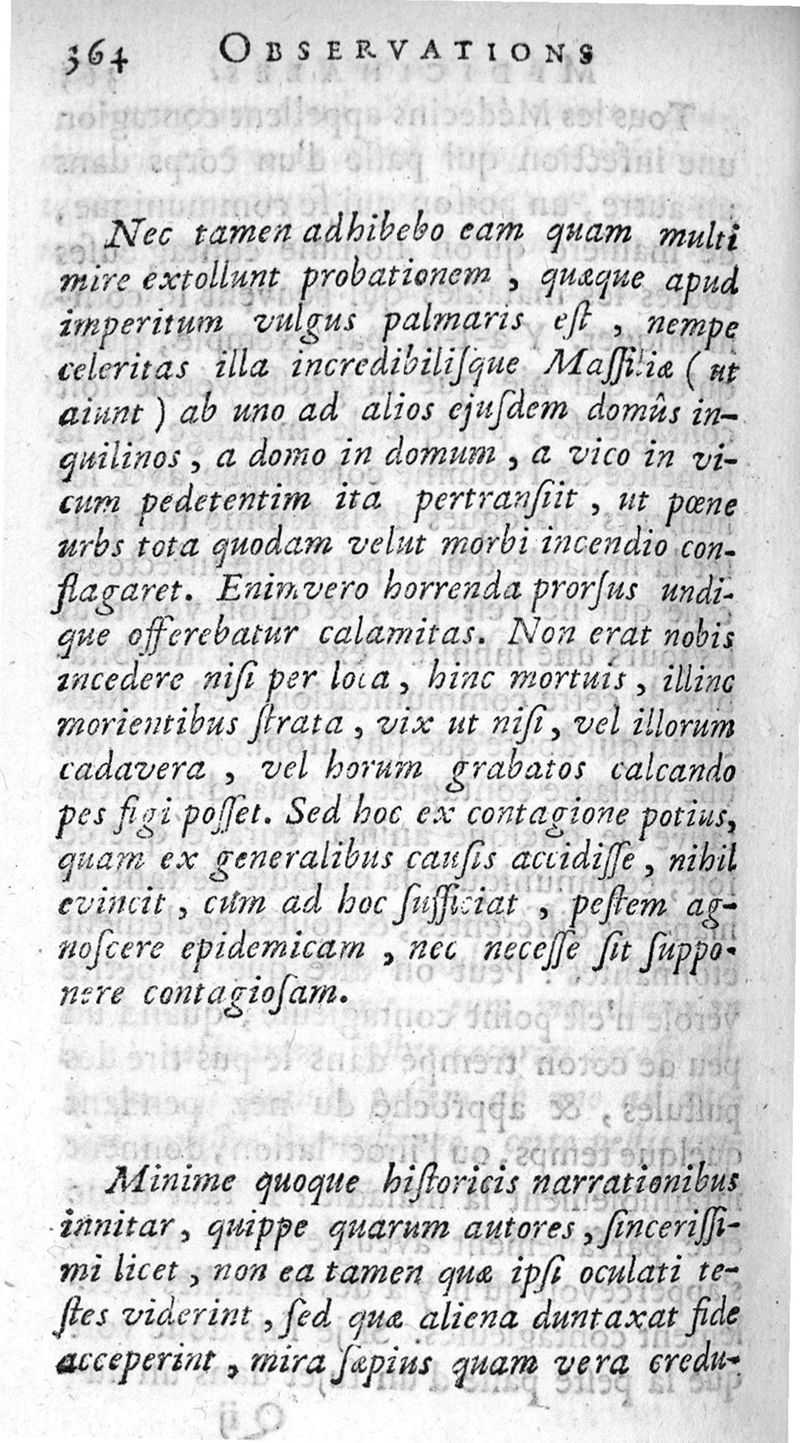 364 OBSERVATIONS
Nec tamen adhibebo eam quam multi
mire extollunt probationem, quæque apud
imperitum vulgus palmaris eſt, nempe
celeritas illa incredibiliſque Maſſiliæ (ut
aiunt) ab uno ad alios ejuſdem domûs in-
quilinos, a domo in domum, a vico in vi-
cum pedetentim ita pertranſiit, ut pœne
urbs tota quodam velut morbi incendio con-
flagaret. Enimvero horrenda prorſus undi-
que offerebatur calamitas. Non erat nobis
incedere niſi per loca, hinc mortuis, illinc
morientibus ſtrata, vix ut niſi, vel illorum
cadavera, vel horum grabatos calcando
pes figi poſſet. Sed hoc ex contagione potius,
quam ex generalibus cauſis accidiſſe, nihil
evincit, cùm ad hoc ſufficiat, peſtem ag-
noſcere epidemicam, nec neceſſe ſit ſuppo-
nere contagioſam.
Minime quoque hiſtoricis narrationibus
innitar, quippe quarum autores, ſinceriſſi-
mi licet, non ea tamen quæ ipſi oculati te-
ſtes viderint, ſed quæ aliena duntaxat fide
acceperint, mira ſæpius quam vera credu-